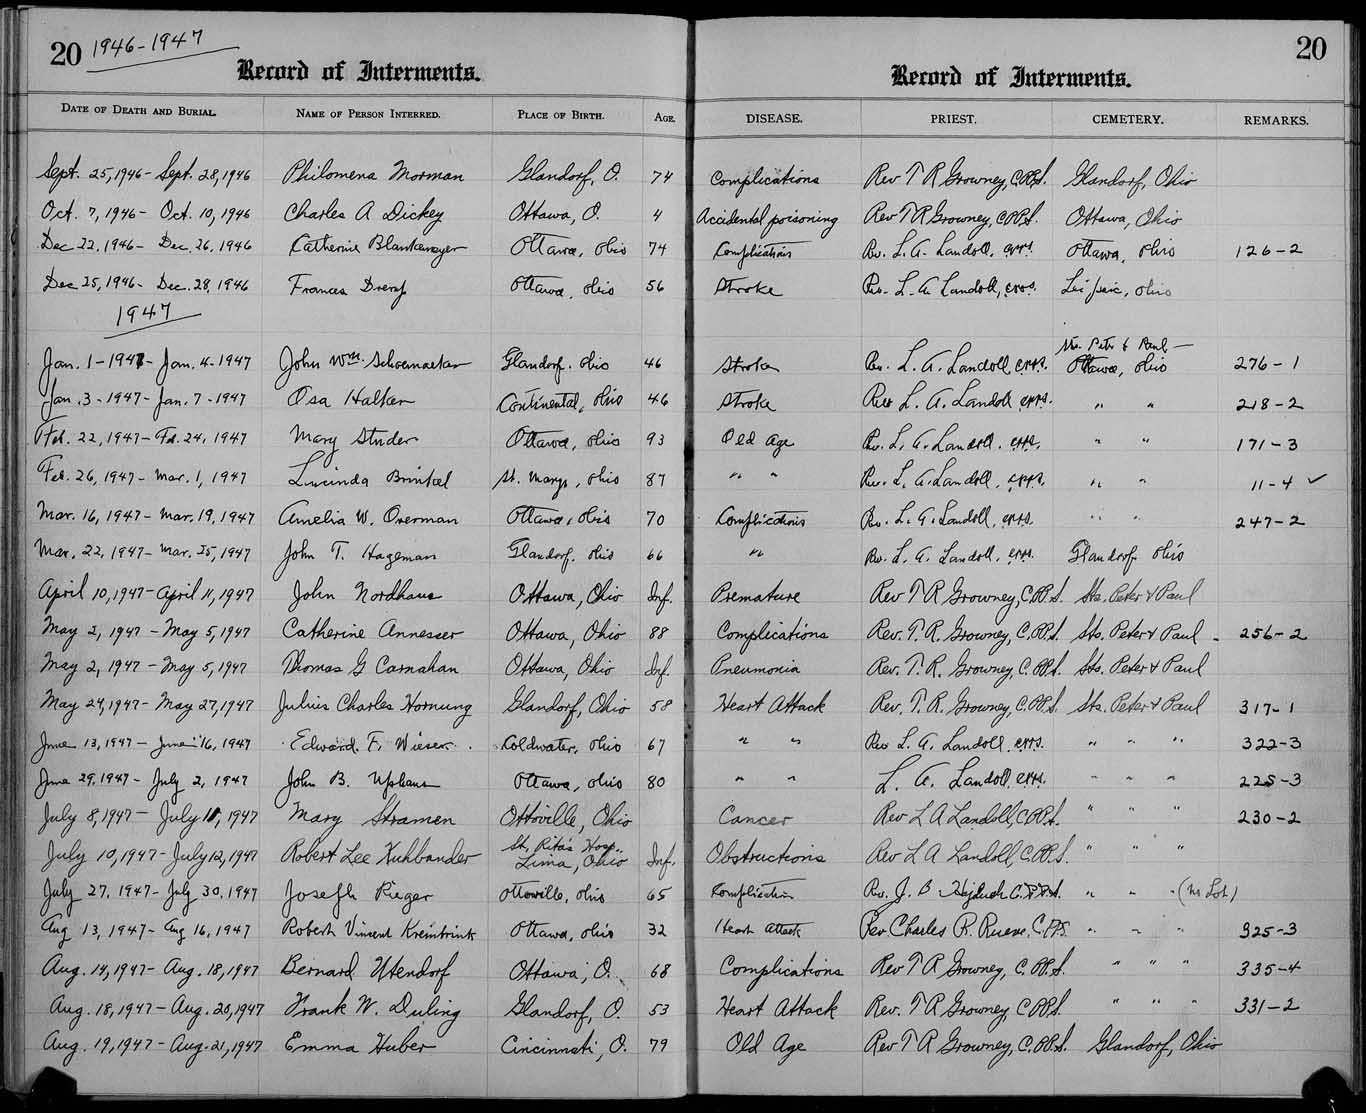 20 1946-1947 20
Record of Interments. Record of Interments.
DATE OF DEATH AND BURIAL. NAME OF PERSON INTERRED. PLACE OF BIRTH. AGE. DISEASE. PRIEST. CEMETERY. REMARKS.
Sept. 25, 1946 - Sept. 28, 1946 Philomena Morman Glandorf, O. 74 Complications Rev T R Growney, C.PP.S. Glandorf, Ohio
Oct. 7, 1946 - Oct. 10, 1946 Charles A Dickey Ottawa, O. 4 Accidental poisoning Rev T R Growney, C.PP.S. Ottawa, Ohio
Dec 22, 1946 - Dec. 26, 1946 Catherine Blankemeyer Ottawa, Ohio 74 Complications Rev. L. A. Landoll, cpps. Ottawa, Ohio 126-2
Dec 25, 1946 - Dec. 28, 1946 Frances Ottawa, Ohio 56 Stroke Rev. L. A. Landoll, cpps. Leipsic, Ohio
1947
Sts. Peter & Paul -
Jan. 1 - 1947 - Jan. 4 - 1947 John Wm. Schoemaeker Glandorf. Ohio 46 Stroke Rev. L. A. Landoll, cpps. Ottawa, Ohio 276-1
Jan. 3 - 1947 - Jan. 7 - 1947 Osa Halker Continental, Ohio 46 Stroke Rev L. A. Landoll cpps. " " 218-2
Feb. 22, 1947 - Feb. 24, 1947 Mary Studer Ottawa, Ohio 93 Old Age Rev. L. A. Landoll. cpps. " " 171-3
Feb. 26, 1947 - Mar. 1, 1947 Lucinda Brinkel St. Marys, Ohio 87 " " Rev. L. A. Landoll, cpps. " " 11-4 ✓
Mar. 16, 1947 - Mar. 19, 1947 Amelia W. Overman Ottawa, Ohio 70 Complications Rev. L. A. Landoll, cpps. " " 247-2
Mar. 22, 1947 - Mar. 25, 1947 John T. Hageman Glandorf. Ohio 66 " Rev. L. A. Landoll, cpps. Glandorf Ohio
April 10, 1947 - April 11, 1947 John Nordhaus Ottawa, Ohio Inf. Premature Rev T R Growney, C.PP.S. Sts. Peter & Paul
May 2, 1947 - May 5, 1947 Catherine Annesser Ottawa, Ohio 88 Complications Rev. T. R. Growney, C.PP.S. Sts. Peter & Paul - 256-2
May 2, 1947 - May 5, 1947 Thomas G Carnahan Ottawa, Ohio Inf. Pneumonia Rev. T. R. Growney, C.PP.S. Sts. Peter & Paul
May 24, 1947 - May 27, 1947 Julius Charles Hornung Glandorf, Ohio 58 Heart Attack Rev. T. R. Growney, C.PP.S. Sts. Peter & Paul 317-1
June 13, 1947 - June 16, 1947 Edward F. Wieser. Coldwater, Ohio 67 " " Rev L. A. Landoll. cpps. " " " 322-3
June 29, 1947 - July 2, 1947 John B. Uphaus Ottawa, Ohio 80 " " L. A. Landoll, cpps. " " " 225-3
July 8, 1947 - July 11, 1947 Mary Stramen Ottoville, Ohio Cancer Rev L A Landoll, C.PP.S. " " " 230-2
St. Rita's Hosp.,
July 10, 1947 - July 12, 1947 Robert Lee Kuhbander Lima, Ohio Inf. Obstructions Rev L A Landoll, C.PP.S. " " "
July 27, 1947 - July 30, 1947 Joseph Rieger Ottoville, Ohio 65 Complication Rev. J. B. C.PP.S. " " " (No Lot)
Aug 13, 1947 - Aug 16, 1947 Robert Vincent Kreinbrink Ottawa, Ohio 32 Heart Attack Rev Charles R. Rueve, C.PP.S. " " " 325-3
Aug. 14, 1947 - Aug. 18, 1947 Bernard Utendorf Ottawa, O. 68 Complications Rev T R Growney, C.PP.S. " " " 335-4
Aug. 18, 1947 - Aug. 20, 1947 Frank W. Duling Glandorf, O. 53 Heart Attack Rev. T R Growney, C.PP.S. " " " 331-2
Aug. 19, 1947 - Aug. 21, 1947 Emma Huber Cincinnati, O. 79 Old Age Rev T R Growney, C.PP.S. Glandorf, Ohio